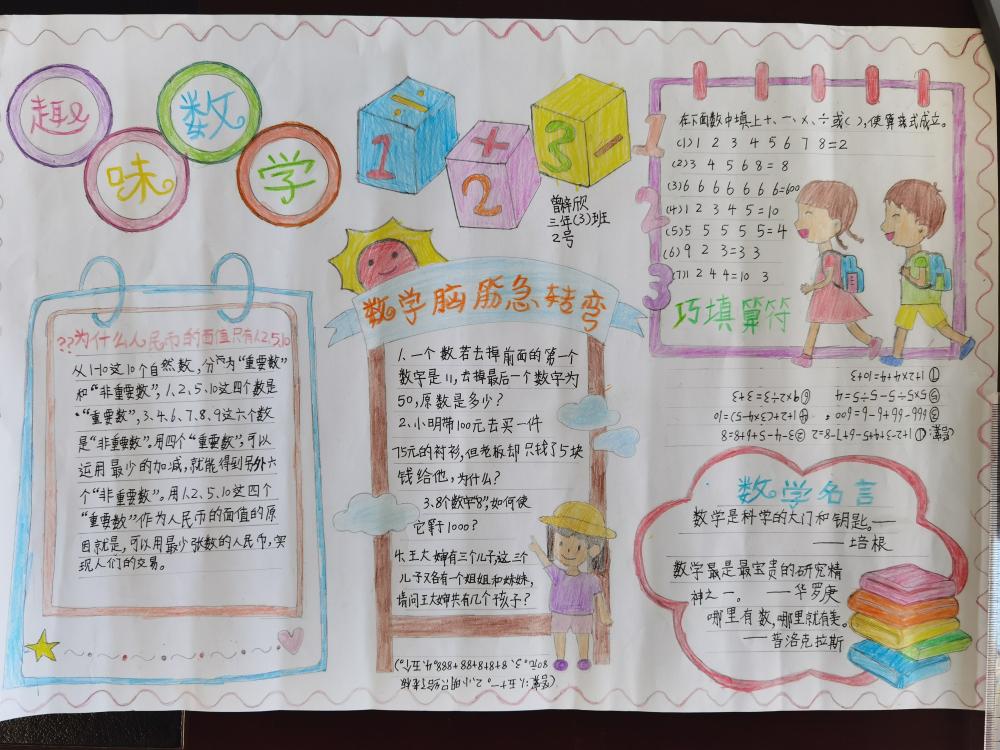 趣味数学
1 ÷
2 +
3 −
曾梓欣
三年(3)班
2号
??为什么人民币的面值只有1.2.5.10
从1-10这10个自然数，分为“重要数”
和“非重要数”，1、2、5、10这四个数是
“重要数”，3、4、6、7、8、9这六个数
是“非重要数”。用四个“重要数”，可以
运用最少的加减，就能得到另外六
个“非重要数”。用1、2、5、10这四个
“重要数”作为人民币的面值的原
因就是，可以用最少张数的人民币，实
现人们的交易。
数学脑筋急转弯
1、一个数若去掉前面的第一个
数字是11，去掉最后一个数字为
50，原数是多少？
2、小明带100元去买一件
75元的衬衫，但老板却只找了5块
钱给他，为什么？
3、8个数字“8”，如何使
它等于1000？
4、王大婶有三个儿子，这三个
儿子又各有一个姐姐和妹妹，
请问王大婶共有几个孩子？
(答案：1、五十一。2、小明只给了老板
80元。3、8+8+8+88+888。4、五个。)
1
2
3
在下面数中填上+、−、×、÷或( )，使算式成立。
(1) 1 2 3 4 5 6 7 8=2
(2) 3 4 5 6 8=8
(3) 6 6 6 6 6 6 6=600
(4) 1 2 3 4 5=10
(5) 5 5 5 5 5=4
(6) 9 2 3=3 3
(7) 1 2 4 4=10 3
巧填算符
答案: ②3-4-5+6+8=8
③666-66+6-6=600 ④1+2+(3×4-5)=10
⑤5×5÷5-5÷5=4 ⑥9×2÷3=3+3
⑦1+2×4+4=10+3
数学名言
数学是科学的大门和钥匙。—
——培根
数学是最宝贵的研究精
神之一。——华罗庚
哪里有数，哪里就有美。
——普洛克拉斯